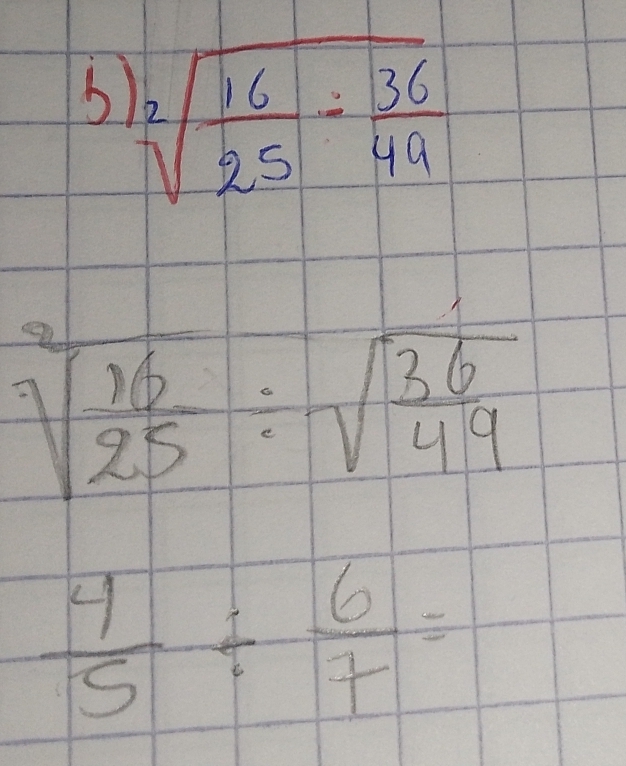 b) ²√(16/25 ÷ 36/49)
²√(16/25) ÷ √(36/49)
4/5 ÷ 6/7 =